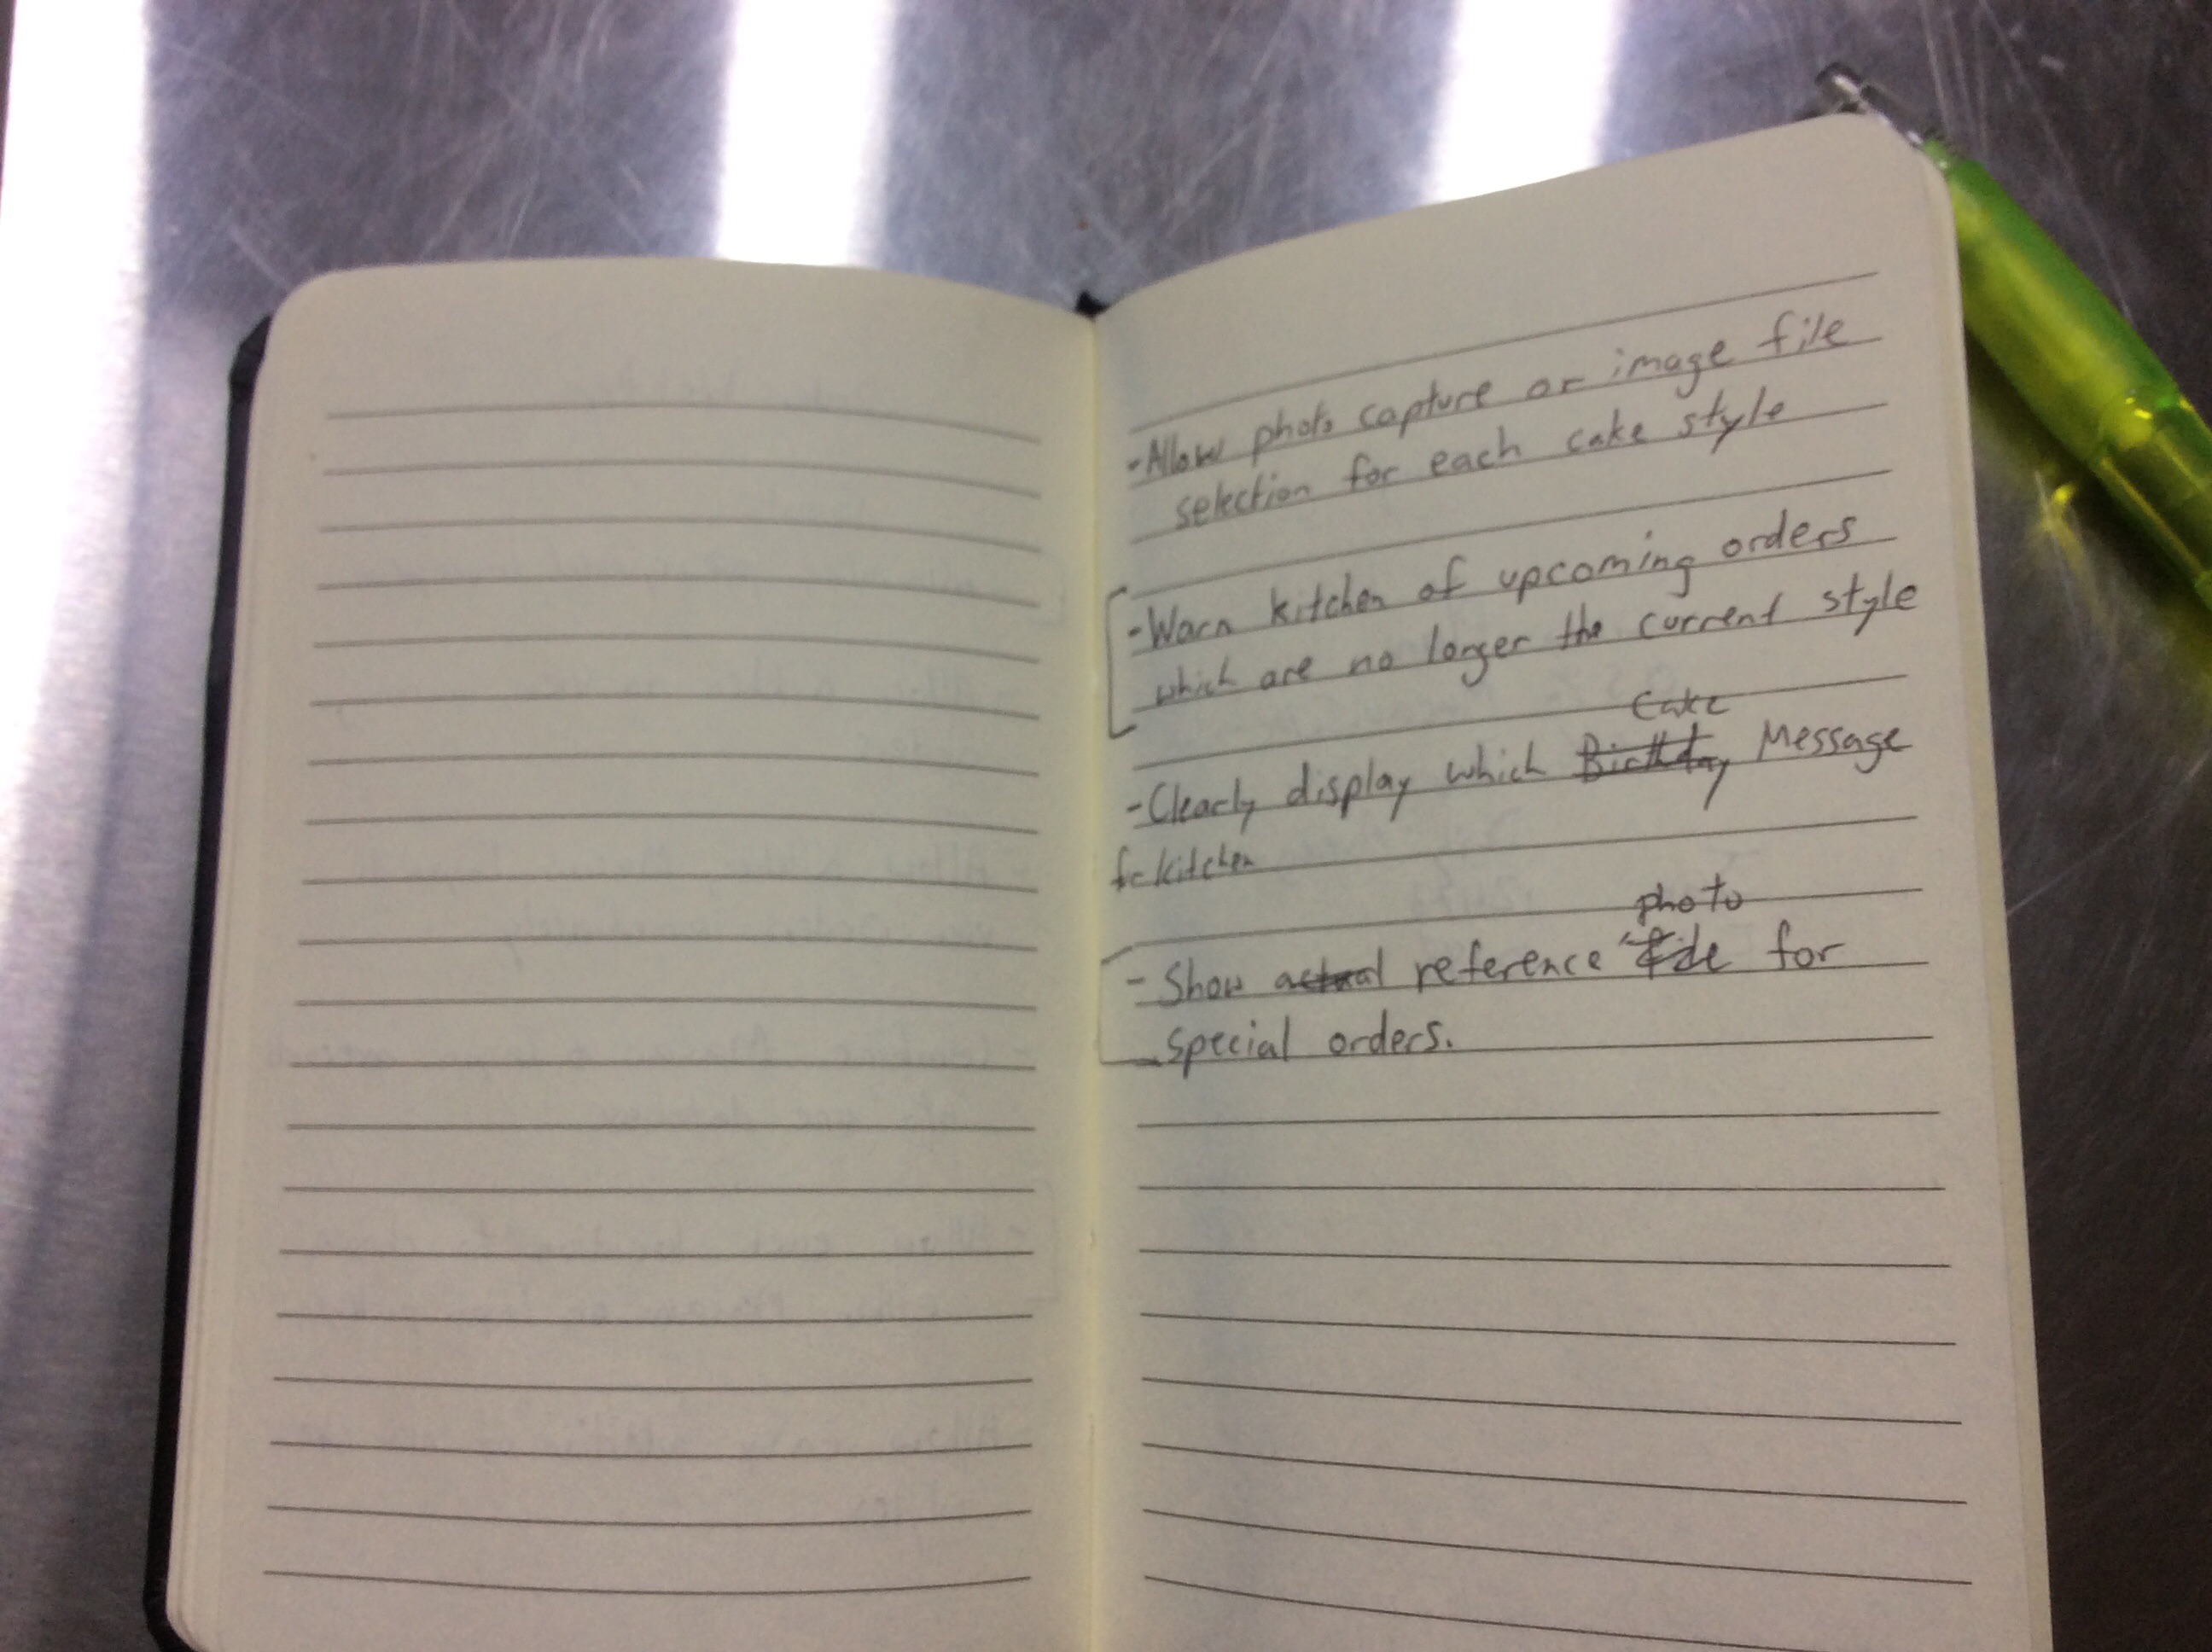 - Allow photo capture or image file
selection for each cake style
- Warn kitchen of upcoming orders
which are no longer the current style
Cake
- Clearly display which Birthday Message
for kitchen
photo
- Show actual reference file for
special orders.